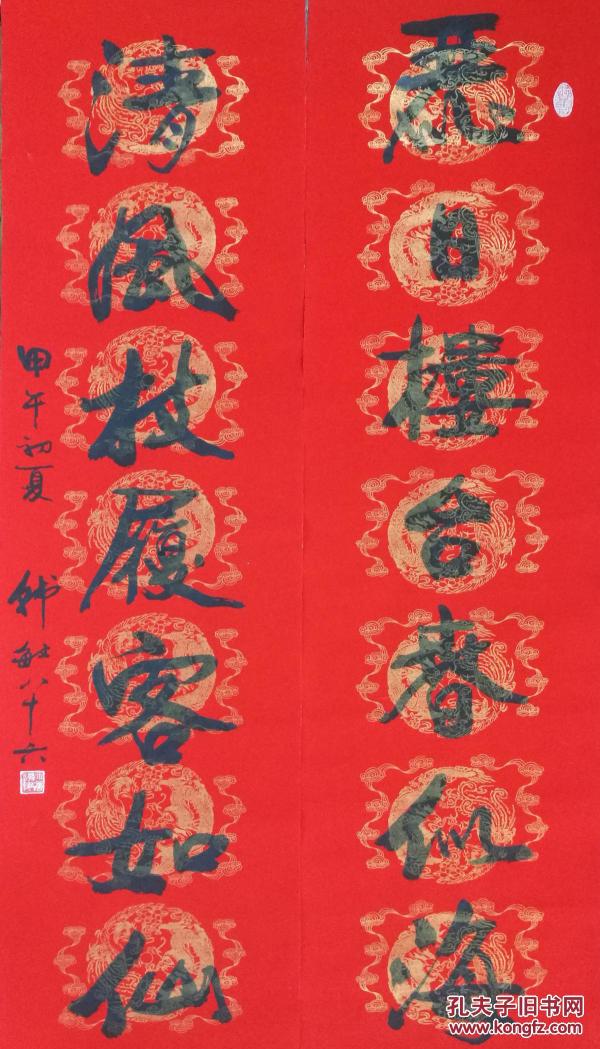 麗日樓台春似海
清風杖履客如仙
甲午初夏
韩敏八十六
孔夫子旧书网
www.kongfz.com